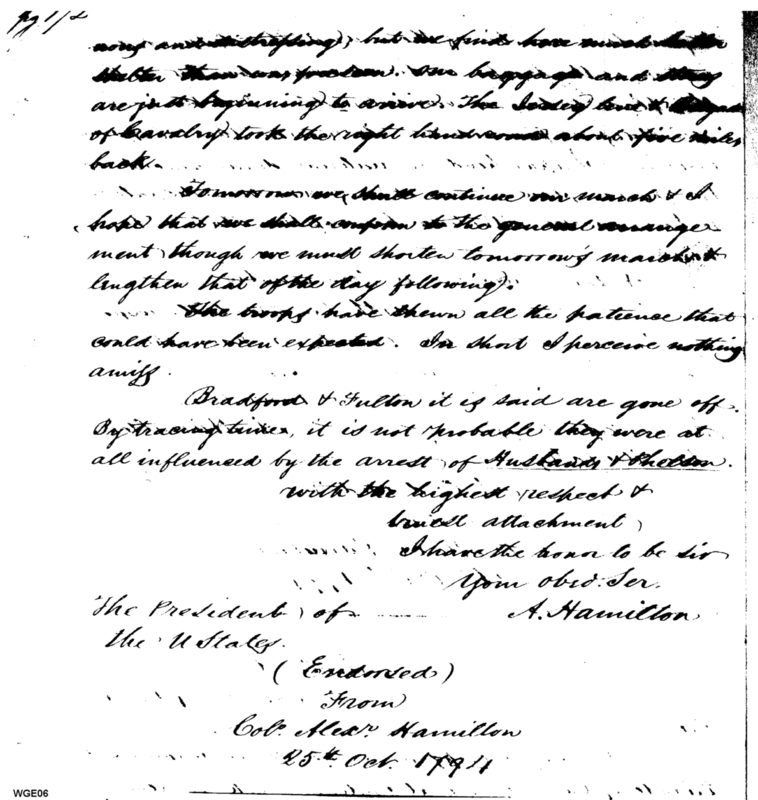 pg 1/2
nous and distressing, but we find have much better
shelter than was foreseen. Our baggage and stores
are just beginning to arrive. The Jersey line & Brigade
of Cavalry took the right hand about five miles
back.
Tomorrow we shall continue our march & I
hope that we shall conform to the general arrange
ment though we must shorten tomorrow's march &
lengthen that of the day following.
The troops have shewn all the patience that
could have been expected. In short I perceive nothing
amiss.
Bradford & Fulton it is said are gone off.
By tracing time, it is not probable they were at
all influenced by the arrest of Husbands &
with the highest respect &
truest attachment
I have the honor to be sir
Your Obed. Ser.
The President of A. Hamilton
the U States.
(Endorsed)
From
Colo. Alexr. Hamilton
25th Oct. 1794
WGE06